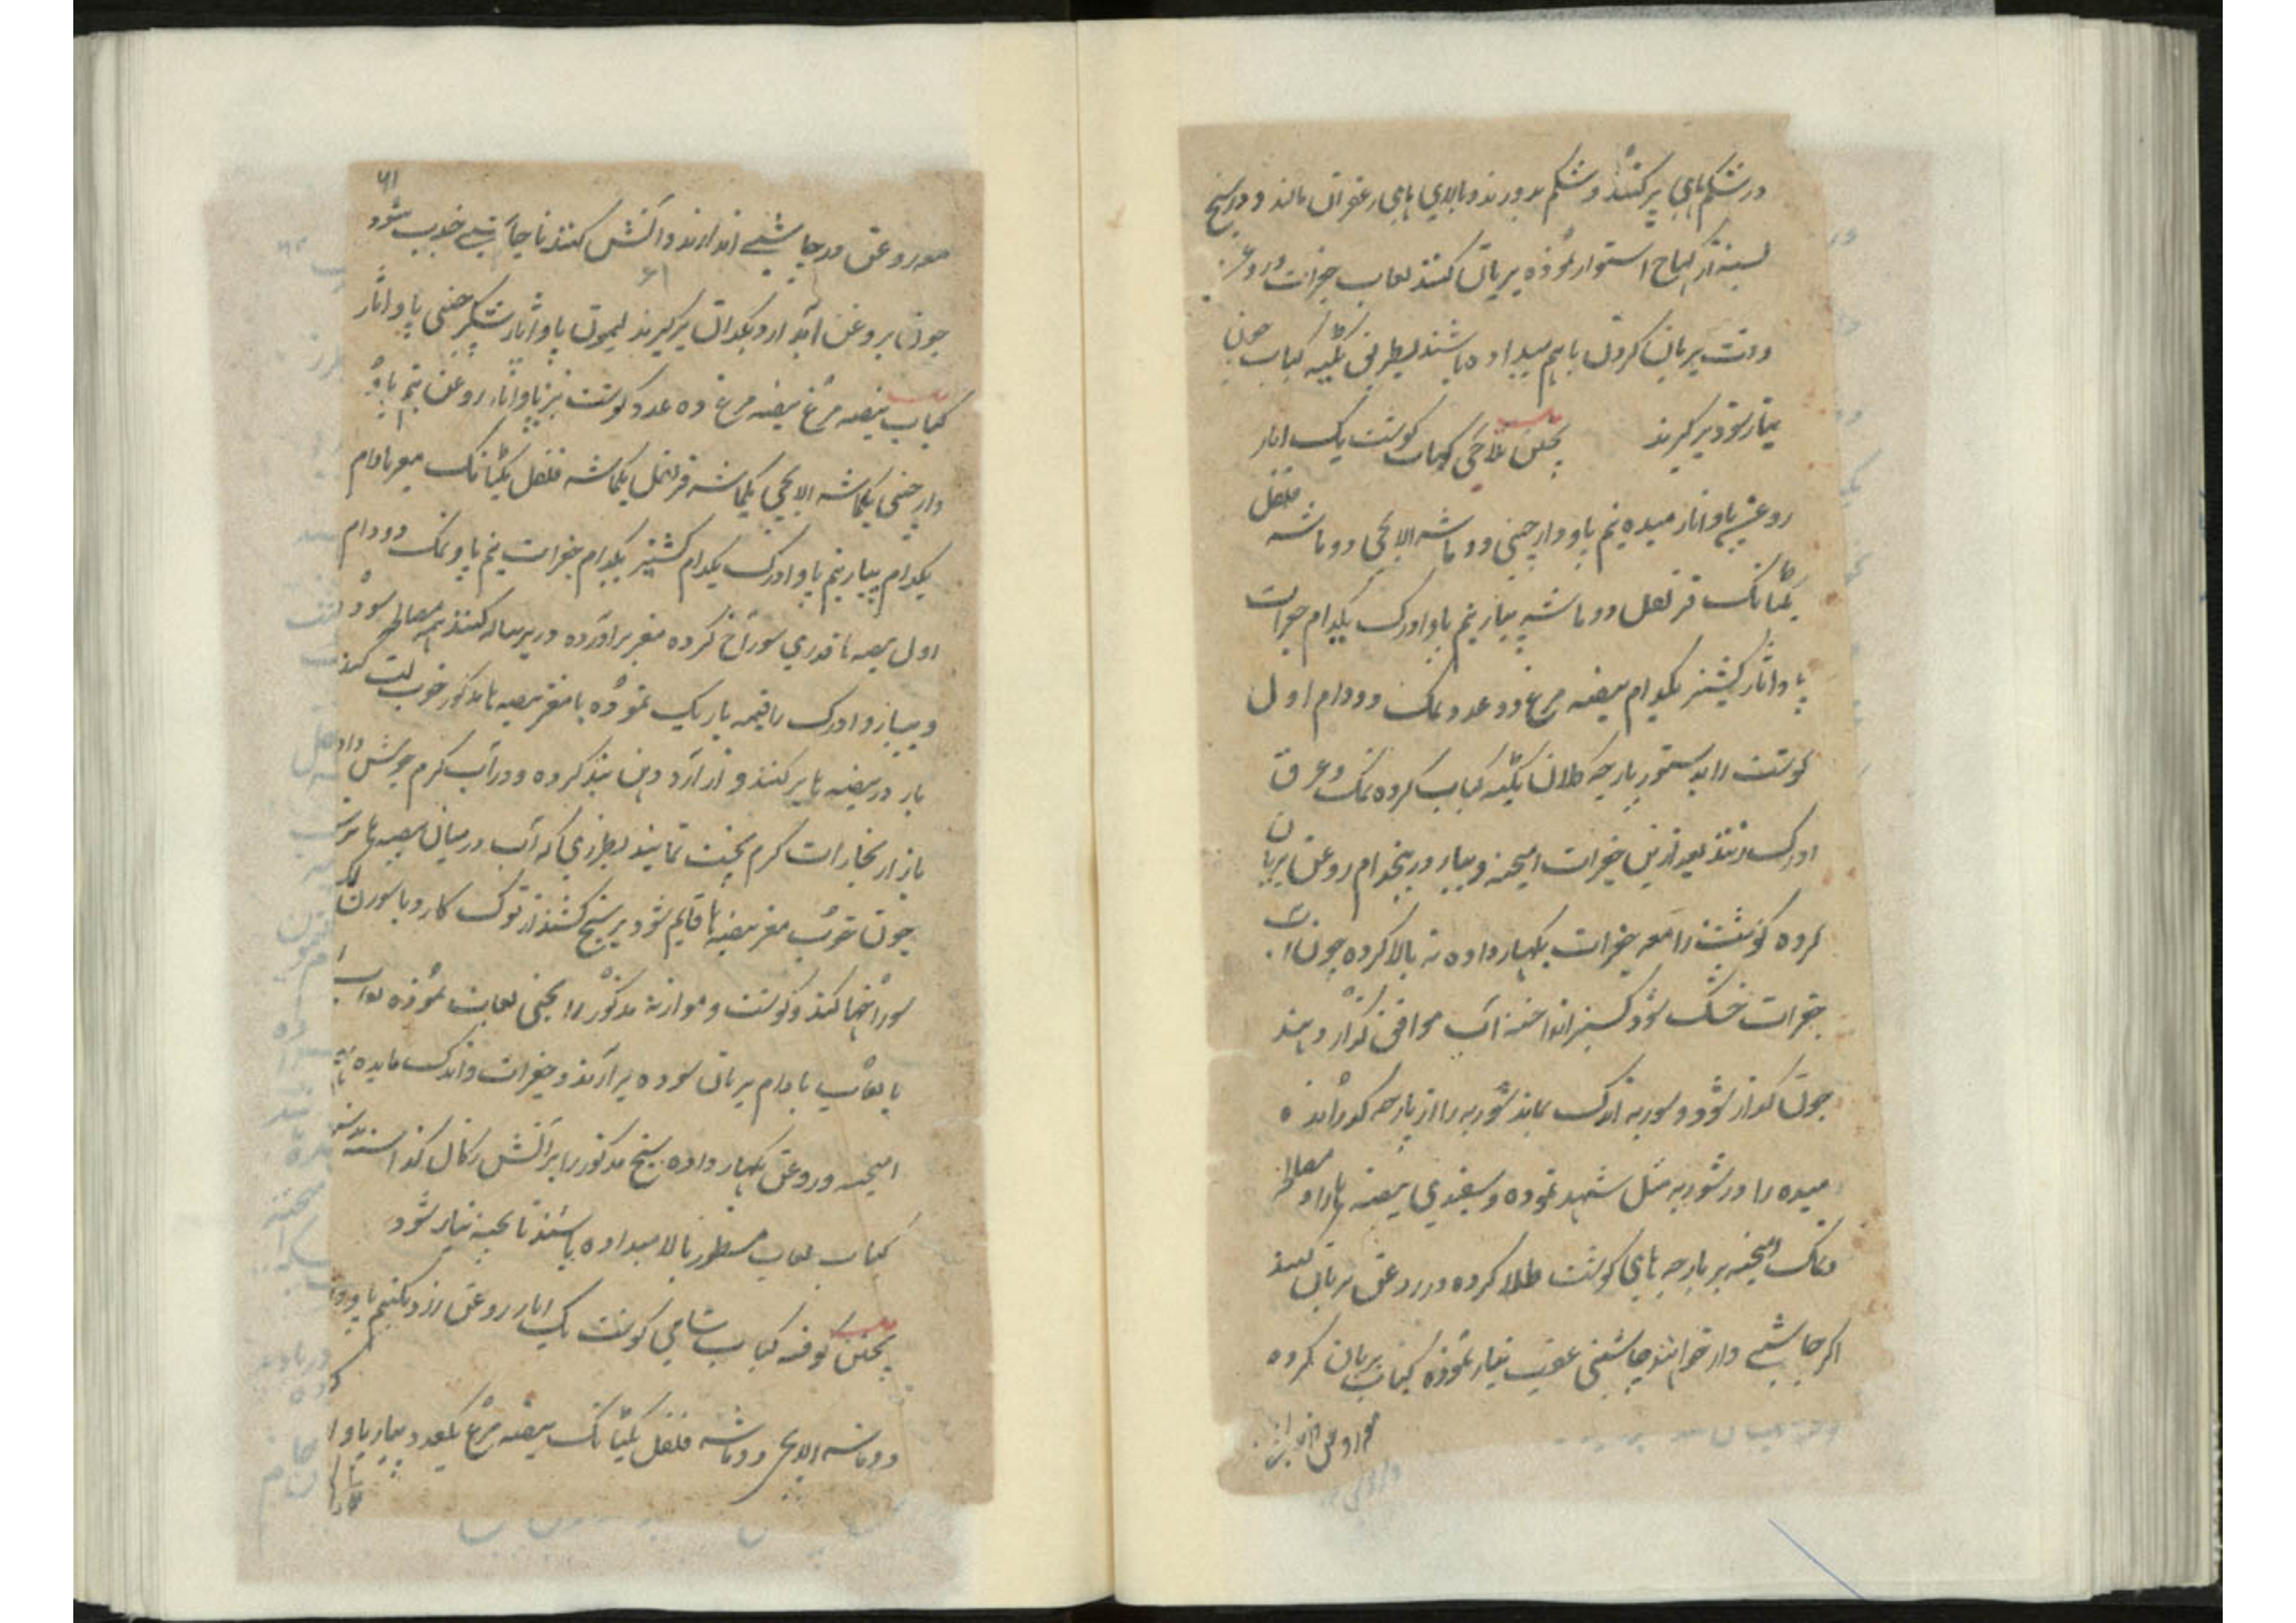 در شکم ماهی پر کنند و شکم بدوزند و بالای ماهی زعفران مالند و در سیخ
بسته از کباح استوار نموده بریان کنند لعاب جغرات و روغن
وقت بریان کردن باهم میداده باشند بطریق تکیه کباب چون
تیار شود برگیرند پختن ملاحی کباب گوشت یک اثار
روغن پاو اثار میده نیم پاو دارچینی دو ماشه الایچی دو ماشه فلفل
یکتانک قرنفل دو ماشه پیاز نیم پاو ادرک یکدام جغرات
پاو اثار کشنیز یکدام بیضه مرغ دو عدد نمک دو دام اول
گوشت را بدستور پارچه کلان تکیه کباب کرده نمک و عرق
ادرک زنند بعد ازین جغرات آمیخته و پیاز در پنجدام روغن بریان
کرده گوشت را معه جغرات بگهار داده ته بالا کرده چون آب
جغرات خشک شود کشنیز انداخته آب موافق گداز دهند
چون گداز شود و شوربه اندک بماند شوربه را از پارچه گذرانده
میده را در شوربه مثل شهد نموده و سفیدی بیضه ها را و مصالح
و نمک آمیخته بر پارچه های گوشت طلا کرده در روغن بریان کنند
اگر چاشنی دار خواهند چاشنی عقب تیار نموده کباب بریان کرده
۶۱
معه روغن در چاشنی اندازند و آتش کنند تا چاشنی خوب شود
چون بروغن آید از دیگدان برگیرند لیمون پاو اثار شکر چینی پاو اثار
کباب بیضه مرغ بیضه مرغ ده عدد گوشت بز پاو اثار روغن نیم پاو
دارچینی یکماشه الایچی یکماشه قرنفل یکماشه فلفل یکتانک مغز بادام
یکدام پیاز نیم پاو ادرک یکدام کشنیز یکدام جغرات نیم پاو نمک دو دام
اول بیضه ها قدری سوراخ کرده مغز برآورده در پیاله کنند همه مصالح سوده
و پیاز و ادرک را قیمه باریک نموده با مغز بیضه ها مذکور خوب لت کنند
باز در بیضه ها پر کنند و از آرد دهن بند کرده و در آب گرم جوش داده
باز از بخارات گرم پخت نمایند بطرزی که آب در میان بیضه ها نرسد
چون خوب مغز بیضه ها قایم شود بر سیخ کشند از نوک کارد یا سوزن
سوراخها کنند و گوشت و موازنه مذکور را یخنی لعاب نموده لعاب
با لعاب بادام بریان سوده برآرند و جغرات و اندک مایده
آمیخته و روغن بگهار داده سیخ مذکور را بر آتش زگال گذاشته
کباب لعاب مسطور بالا میداده باشند تا پخته تیار شود
پختن کوفته کباب شامی گوشت یک اثار روغن زرد یکنیم پاو
دو ماشه الایچی دو ماشه فلفل یکتانک بیضه مرغ یکعدد پیاز پاو